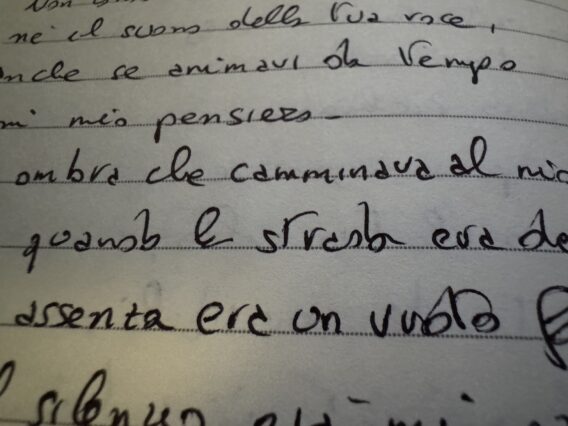 né il suono della tua voce,
anche se animavi da tempo
mio pensiero.
ombra che camminava al mio
quando la strada era de
assenza era un vuoto
silenzio